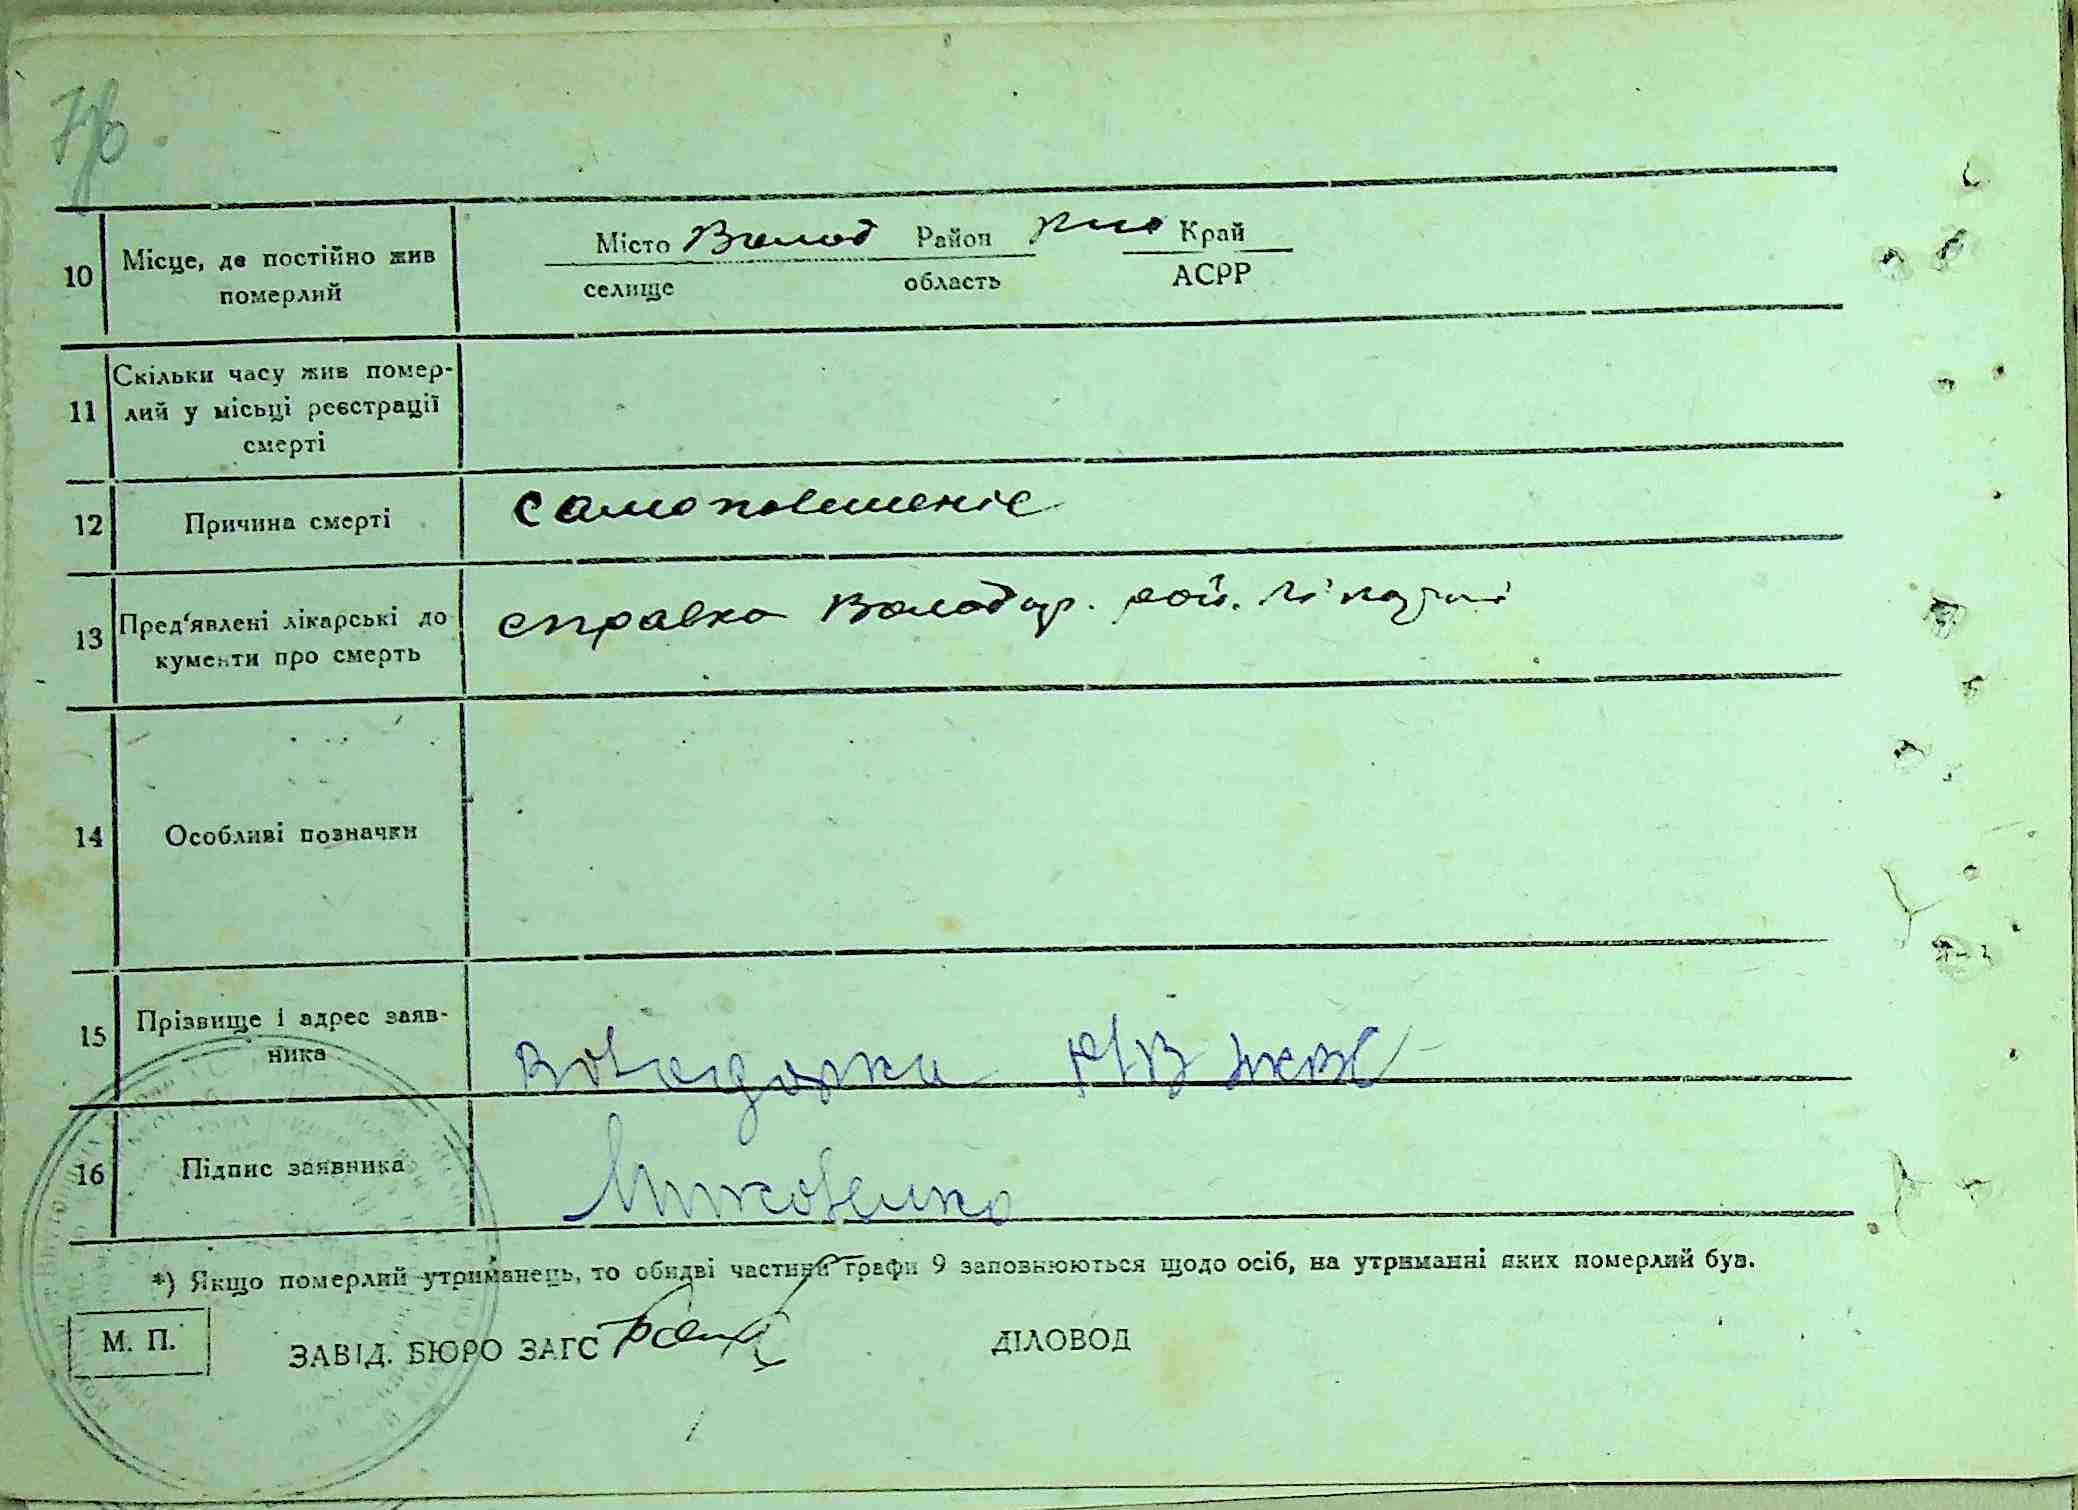 10 Місце, де постійно жив Місто Волод Район Край
померлий селище область АСРР
Скільки часу жив помер-
11 лий у місьці реєстрації
смерті
12 Причина смерті самоповишеніє
13 Пред'явлені лікарські до справка Володар. рай. лікарні
кументи про смерть
14 Особливі позначки
15 Прізвище і адрес заяв- Володарка
ника
16 Підпис заявника
*) Якщо померлий утриманець, то обидві частини графи 9 заповнюються щодо осіб, на утриманні яких померлий був.
М. П. ЗАВІД. БЮРО ЗАГС ДІЛОВОД